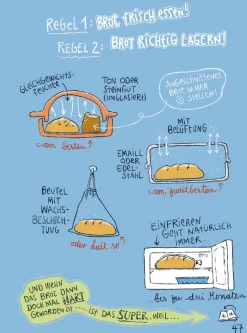 REGEL 1: BROT FRISCH ESSEN!
REGEL 2: BROT RICHTIG LAGERN!
GLEICHGEWICHTS-
FEUCHTE
TON ODER
STEINGUT
(UNGLASIERT)
ANGESCHNITTENES
BROT IMMER
SO STELLEN!
am besten ↑
MIT
BELÜFTUNG
EMAILL ODER
EDEL-
STAHL
am zweitbesten ↑
BEUTEL
MIT
WACHS-
BESCHICH-
TUNG
oder halt so ↑
EINFRIEREN
GEHT NATÜRLICH
IMMER...
...bis zu drei Monaten
UND WENN
DAS BROT DANN
DOCH MAL HART
GEWORDEN IST .... IST DAS SUPER, WEIL ...
47